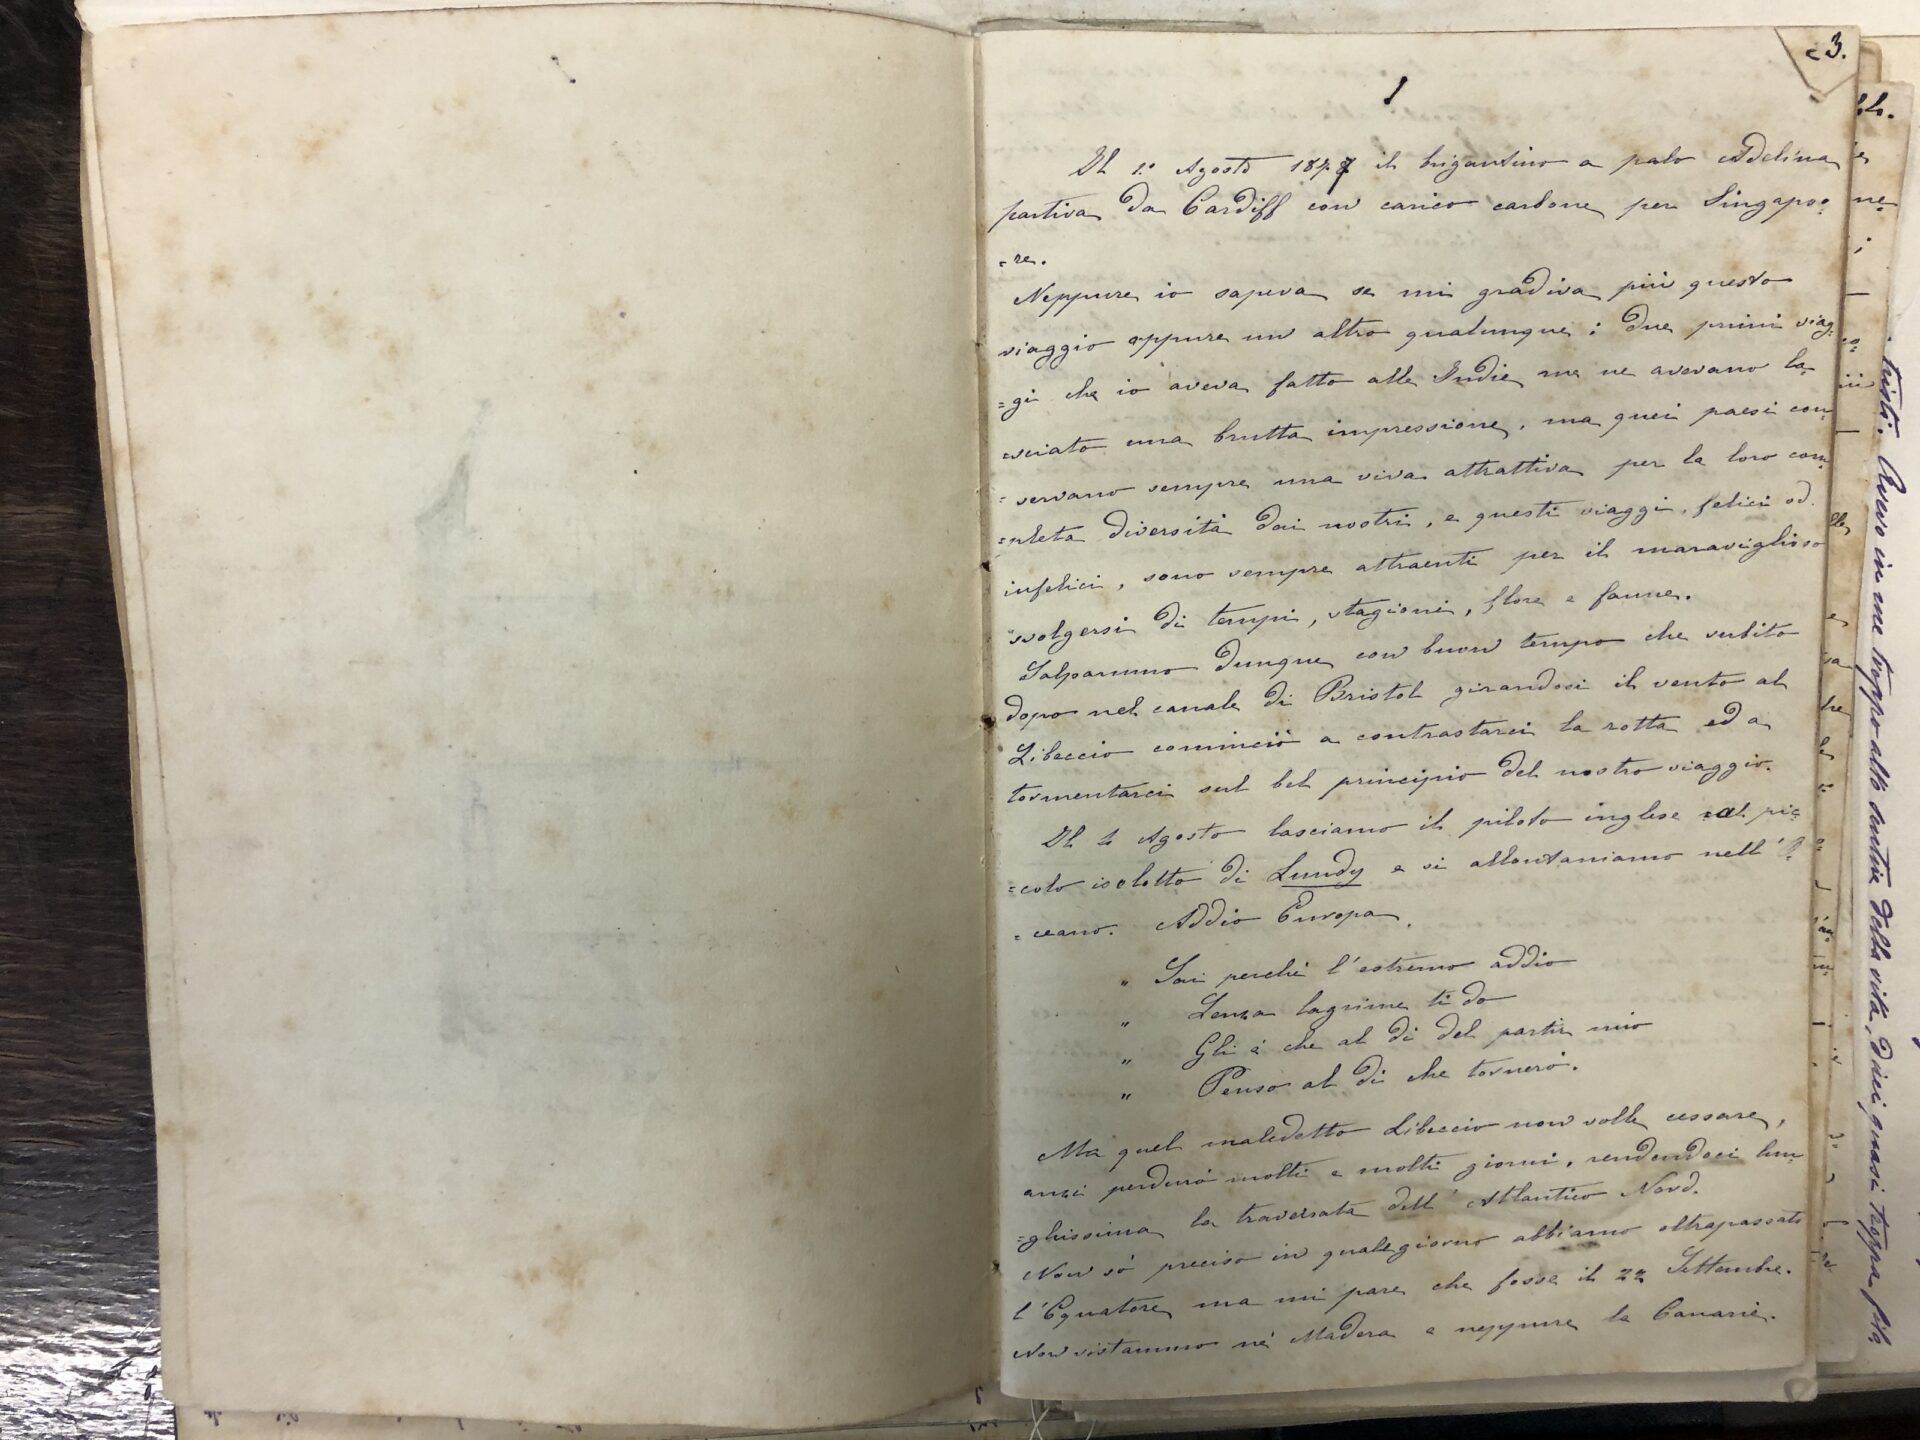 3.
1
Il 1.º Agosto 1877 il brigantino a palo Adelina
partiva da Cardiff con carico carbone per Singapo=
=re.
Neppure io sapeva se mi gradiva più questo
viaggio oppure un altro qualunque: due primi viag=
=gi che io aveva fatto alle Indie me ne avevano la=
=sciato una brutta impressione, ma quei paesi con=
=servano sempre una viva attrattiva per la loro com=
=pleta diversità dai nostri, e questi viaggi, felici od
infelici, sono sempre attraenti per il maraviglioso
svolgersi di tempi, stagioni, flore e faune.
Salpammo dunque con buon tempo che subito
dopo nel canale di Bristol girandosi il vento al
Libeccio cominciò a contrastarci la rotta ed a
tormentarci sul bel principio del nostro viaggio.
Il 4 Agosto lasciamo il piloto inglese al pic=
=colo isolotto di Lundy e si allontaniamo nell'O=
=ceano. Addio Europa.
" Sai perchè l'estremo addio
" Senza lagrime ti do
" Gli è che al dì del partir mio
" Penso al dì che tornerò.
Ma quel maledetto Libeccio non volle cessare,
anzi perdurò molti e molti giorni, rendendoci lun=
=ghissima la traversata dell'Atlantico Nord.
Non sò preciso in quale giorno abbiamo oltrapassato
l'Equatore, ma mi pare che fosse il 22 Settembre.
Non vistammo nè Madera e neppure le Canarie.
tristi. Avevo in me troppo alto sentire della vita, direi quasi troppa